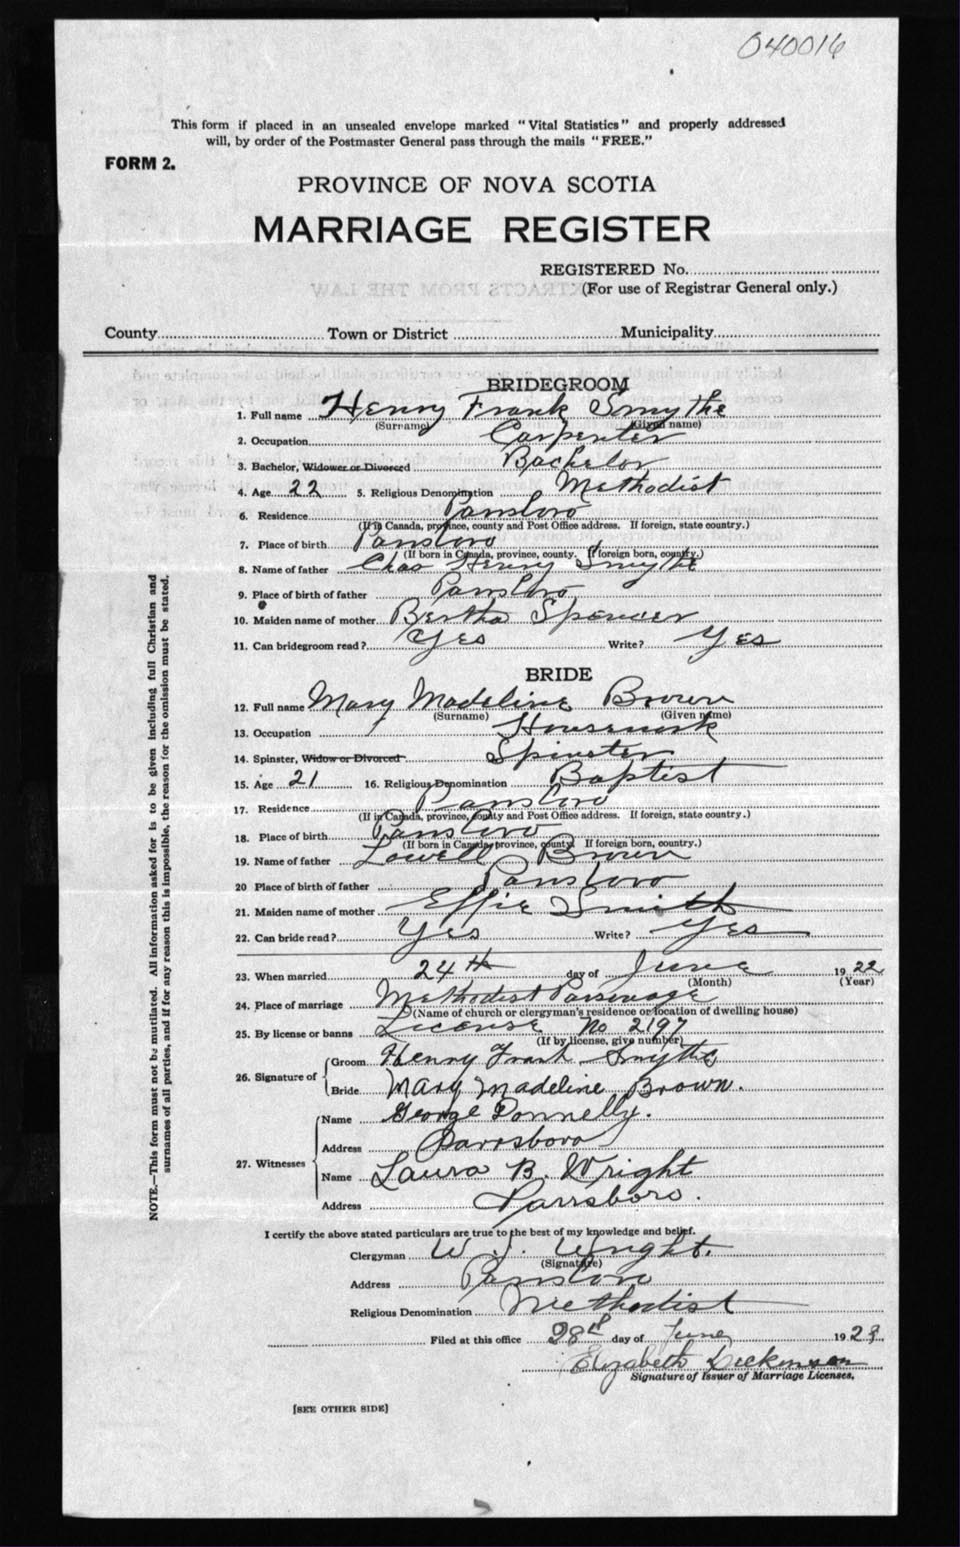 040016
This form if placed in an unsealed envelope marked "Vital Statistics" and properly addressed
will, by order of the Postmaster General pass through the mails "FREE."
FORM 2.
PROVINCE OF NOVA SCOTIA
MARRIAGE REGISTER
REGISTERED No.
(For use of Registrar General only.)
County Town or District Municipality
BRIDEGROOM
1. Full name Henry Frank Smythe
(Surname) (Given name)
2. Occupation Carpenter
3. Bachelor, Widower or Divorced Bachelor
4. Age 22 5. Religious Denomination Methodist
6. Residence Parrsboro
(If in Canada, province, county and Post Office address. If foreign, state country.)
7. Place of birth Parrsboro
(If born in Canada, province, county. If foreign born, country.)
8. Name of father Chas Henry Smythe
9. Place of birth of father Parrsboro
10. Maiden name of mother Bertha Spencer
11. Can bridegroom read? Yes Write? Yes
BRIDE
12. Full name Mary Madeline Brown
(Surname) (Given name)
13. Occupation Housework
14. Spinster, Widow or Divorced Spinster
15. Age 21 16. Religious Denomination Baptist
17. Residence Parrsboro
(If in Canada, province, county and Post Office address. If foreign, state country.)
18. Place of birth Parrsboro
(If born in Canada, province, county. If foreign born, country.)
19. Name of father Lowell Brown
20 Place of birth of father Parrsboro
21. Maiden name of mother Effie Smith
22. Can bride read? Yes Write? Yes
23. When married 24th day of June 1922
(Month) (Year)
24. Place of marriage Methodist Parsonage
(Name of church or clergyman's residence or location of dwelling house)
25. By license or banns License No 2197
(If by license, give number)
26. Signature of
Groom Henry Frank Smythe
Bride Mary Madeline Brown.
27. Witnesses
Name George Donnelly.
Address Parrsboro
Name Laura B. Wright
Address Parrsboro.
I certify the above stated particulars are true to the best of my knowledge and belief.
Clergyman W. J. Wright.
(Signature)
Address Parrsboro
Religious Denomination Methodist
Filed at this office 28th day of June 192
Elizabeth Dickinson
Signature of Issuer of Marriage Licenses.
[SEE OTHER SIDE]
NOTE.—This form must not be mutilated. All information asked for is to be given including full Christian and
surnames of all parties, and if for any reason this is impossible, the reason for the omission must be stated.